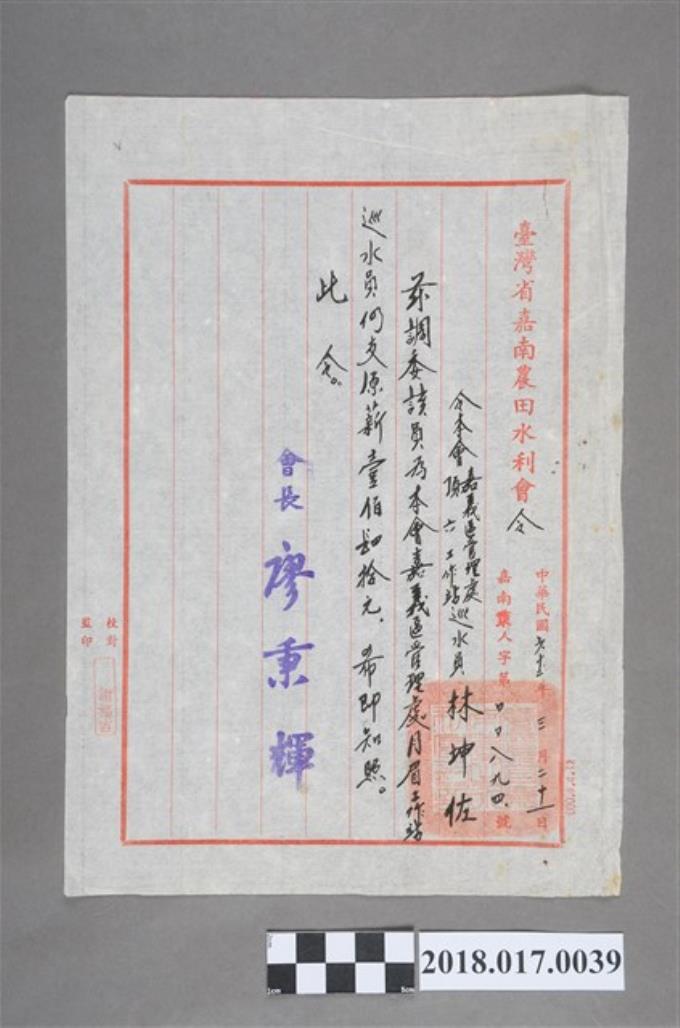 臺灣省嘉南農田水利會令
中華民國六十三年三月二十一日
嘉南業人字第08894號
令本會嘉義區管理處頂六工作站巡水員林坤佐
茲調委該員為本會嘉義區管理處月眉工作站
巡水員仍支原薪壹佰捌拾元、希即知照。
此令。
會長廖秉輝
校對
監印
2018.017.0039